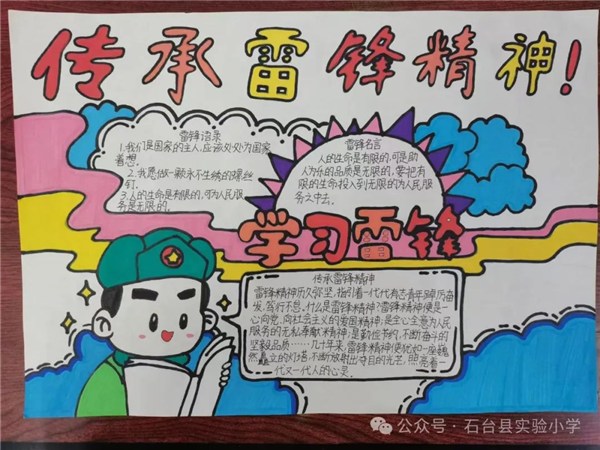 传承雷锋精神!
雷锋语录
1.我们是国家的主人,应该处处为国家
着想。
2.我愿做一颗永不生锈的螺丝
钉。
3.人的生命是有限的,可为人民服
务是无限的。
雷锋名言
人的生命是有限的,可是助
人为乐的品质是无限的,要把有
限的生命投入到无限的为人民服
务之中去。
学习雷锋
传承雷锋精神
雷锋精神历久弥坚,指引着一代代有志青年踔厉奋
发、笃行不怠。什么是雷锋精神?雷锋精神便是一
心向党、向社会主义的爱国精神;是全心全意为人民
服务的无私奉献精神;是勤俭节约、不断奋斗的
坚毅品质……几十年来,雷锋精神便犹如一座巍
然矗立的灯塔,不断放射出夺目的光芒,照亮着一
代又一代人的心灵。
公众号·石台县实验小学